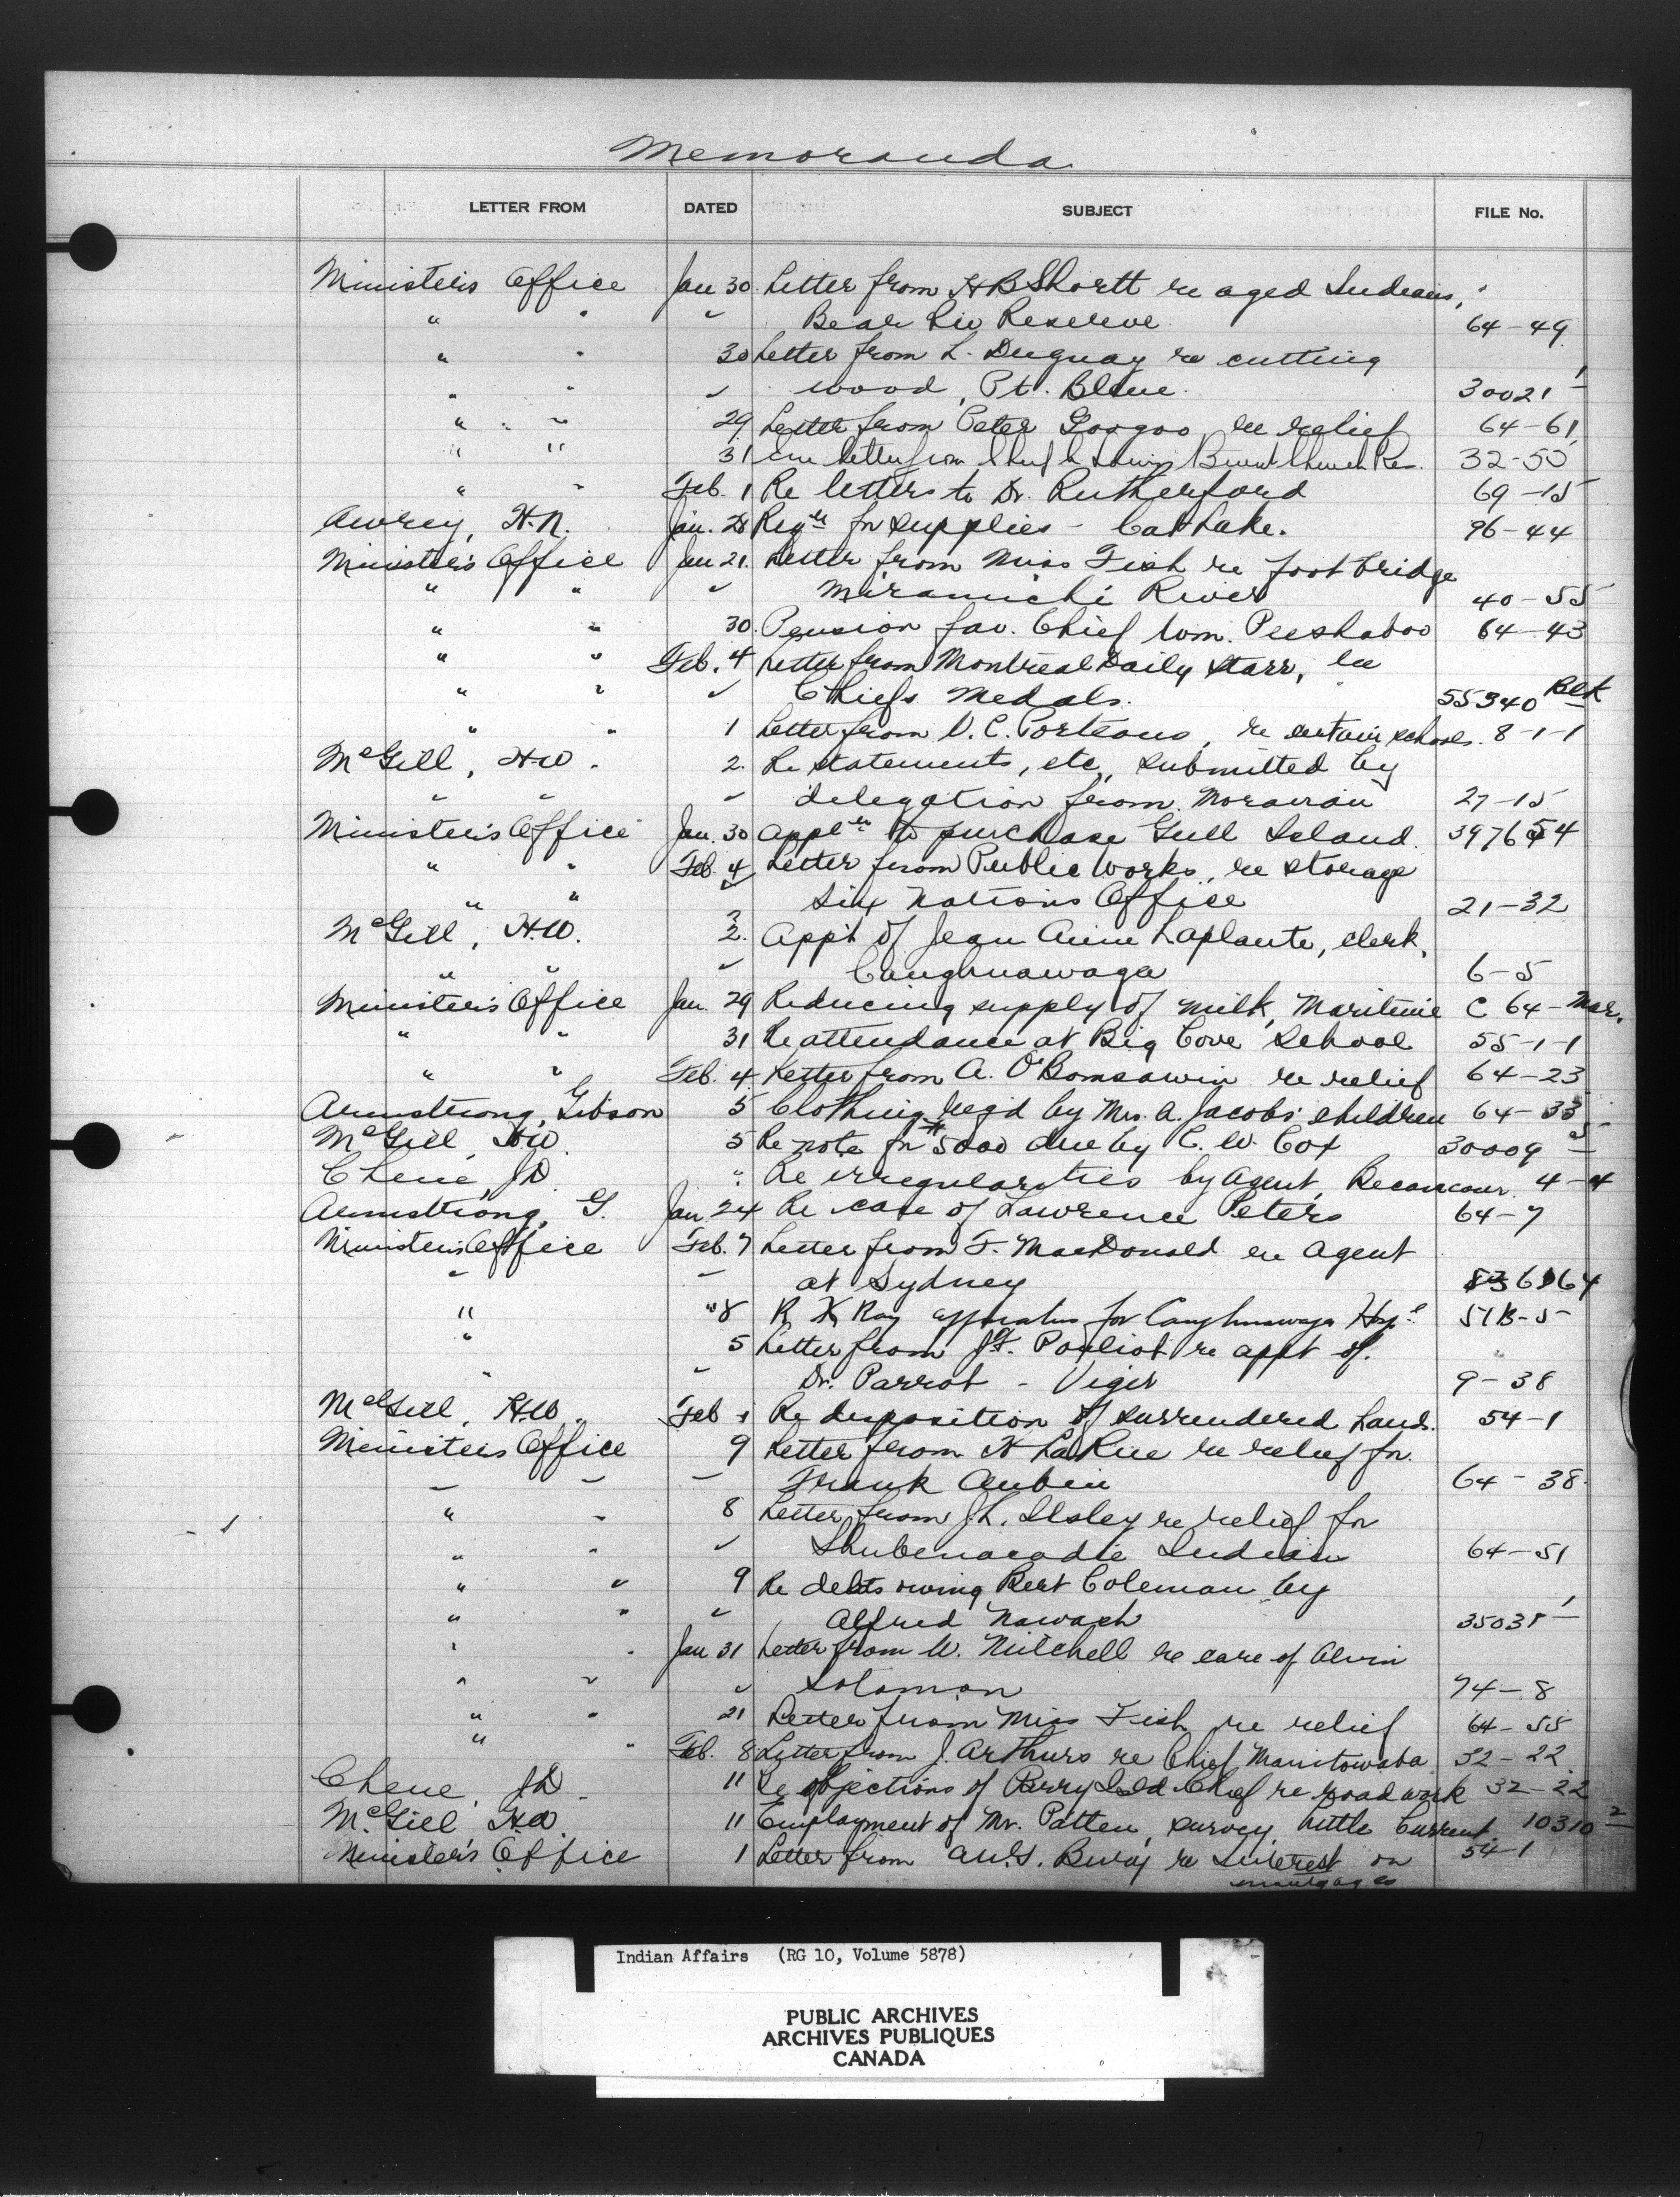 Memoranda
LETTER FROM DATED SUBJECT FILE No.
Minister's Office Jan 30. Letter from H B Shortt re aged Indians,
" " " Bear Riv Reserve 64-49
" " 30 Letter from L. Duguay re cutting
" " " wood, Pt. Bleue 30021-1
" " 29 Letter from Peter Googoo re relief 64-61
" " 31 letter from 32-50
" " Feb. 1 Re letters to Dr. Rutherford 69-15
Awrey, H.N. Jan. 28 for supplies - Cat Lake. 96-44
Minister's Office Jan 21. Letter from Miss Fish re foot bridge
" " " Miramichi River 40-55
" " 30. Pension fav. Chief Wm. Peeshaboo 64-43
" " Feb. 4 Letter from Montreal Daily Starr, re
" " " Chiefs Medals. 55340 Blk
" " 1 Letter from D.C. Porteous, re certain schools. 8-1-1
McGill, H.W. 2. Re statements, etc, submitted by
" " " delegation from Moravian 27-15
Minister's Office Jan. 30 appln to purchase Gull Island. 397654
" " Feb. 4 Letter from Public Works, re storage
" " " Six Nations Office 21-32
McGill, H.W. 2. Appt of Jean Aime Laplante, clerk,
" " " Caughnawaga 6-5
Minister's Office Jan. 29 Reducing supply of milk, Maritime C 64-Mar.
" " 31 Re attendance at Big Cove School 55-1-1
" " Feb. 4 Letter from A. O'Bomsawin re relief 64-23
Armstrong, Gibson 5 Clothing reqd by Mrs. A. Jacobs' children 64-33
McGill, H.W. 5 Re note for $5000 due by C. W. Cox 30009-5
Chene, J.D. " Re irregularities by agent, Becancour. 4-4
Armstrong, G. Jan. 24 Re case of Lawrence Peters 64-7
Minister's Office Feb. 7 Letter from F. MacDonald re agent
" " at Sydney
" " 8 R X Ray apparatus for Caughnawaga Hospl 51B-5
" 5 Letter from J.F. Pouliot re appt of.
" " Dr. Parrot - Viger 9-38
McGill, H.W. Feb 1 Re disposition of surrendered Lands. 54-1
Minister's Office 9 Letter from H LaRue re relief for
" " " Frank Aubin 64-38.
" " 8 Letter from J.L. Ilsley re relief for
" " " Shubenacadie Indians 64-51
" " 9 Re debts owing Bert Coleman by
" " " Alfred Nawash 35038-1
" " Jan 31 Letter from W. Mitchell re care of Alvin
" " " Solomon 74-8
" " 21 Letter from Miss Fish re relief 64-55
" " Feb. 8 Letter from J. Arthurs re Chief Manitowaba 32-22
Chene, J.D. 11 Re objections of Parry Isld Chief re road work 32-22
McGill H.W. 11 Employment of Mr. Patten, survey, Little Current. 10310-2
Minister's Office 1 Letter from re Interest on 54-1
mortgages
Indian Affairs (RG 10, Volume 5878)
PUBLIC ARCHIVES
ARCHIVES PUBLIQUES
CANADA